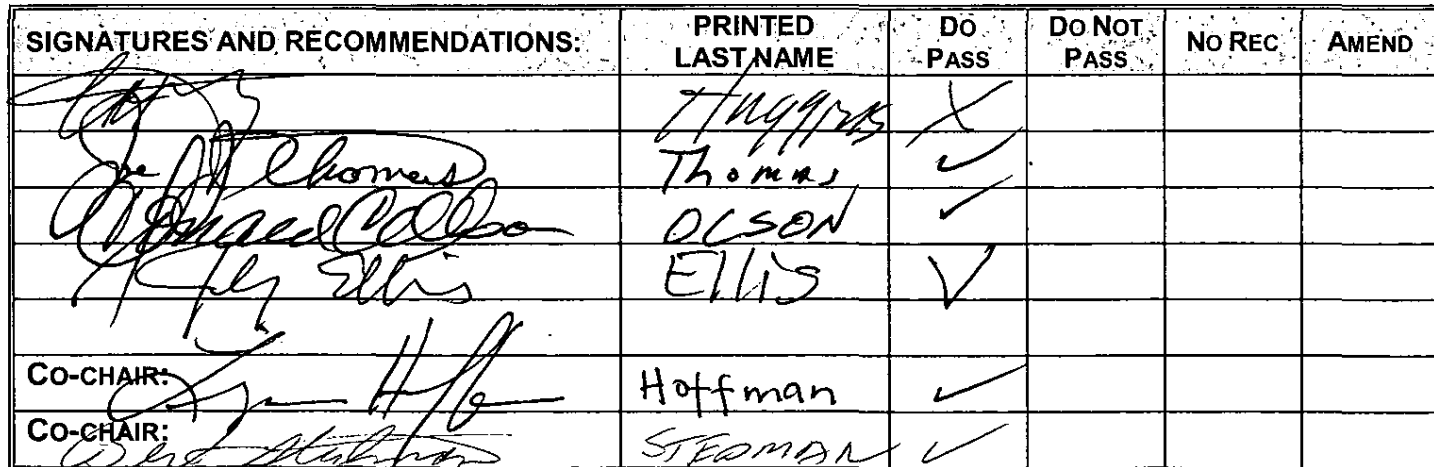 SIGNATURES AND RECOMMENDATIONS: PRINTED LAST NAME DO PASS DO NOT PASS NO REC AMEND
Huggins X
Joe Thomas Thomas ✓
Donald C Olson OLSON ✓
Ellis Ellis ✓
CO-CHAIR: Lyman Hoffman Hoffman ✓
CO-CHAIR: Bert Stedman STEDMAN ✓